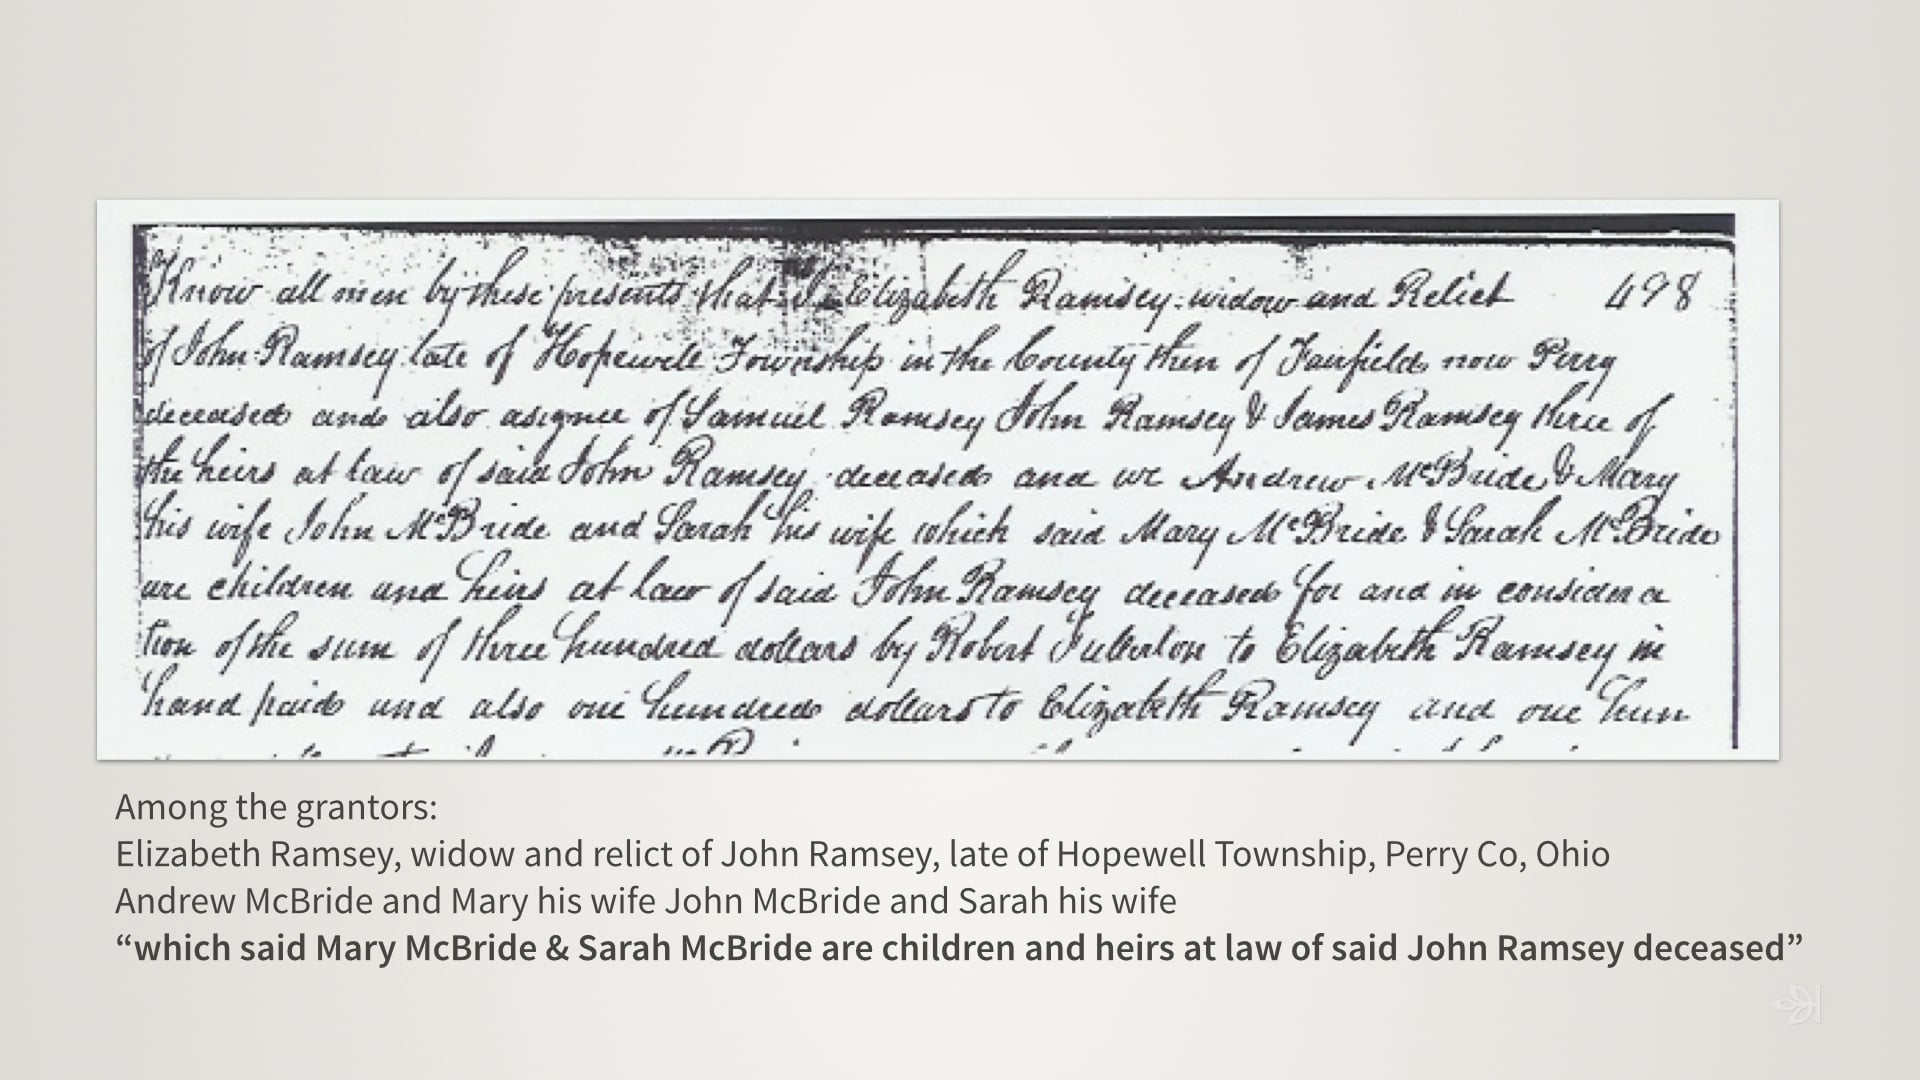 Know all men by these presents that I Elizabeth Ramsey widow and Relict 498
of John Ramsey late of Hopewell Township in the County then of Fairfield now Perry
deceased and also asignee of Samuel Ramsey John Ramsey & James Ramsey three of
the heirs at law of said John Ramsey deceased and we Andrew McBride & Mary
his wife John McBride and Sarah his wife which said Mary McBride & Sarah McBride
are children and heirs at law of said John Ramsey deceased for and in considera
tion of the sum of three hundred dollars by Robert Fullerton to Elizabeth Ramsey in
hand paid and also one hundred dollars to Elizabeth Ramsey and one hun
Among the grantors:
Elizabeth Ramsey, widow and relict of John Ramsey, late of Hopewell Township, Perry Co, Ohio
Andrew McBride and Mary his wife John McBride and Sarah his wife
“which said Mary McBride & Sarah McBride are children and heirs at law of said John Ramsey deceased”